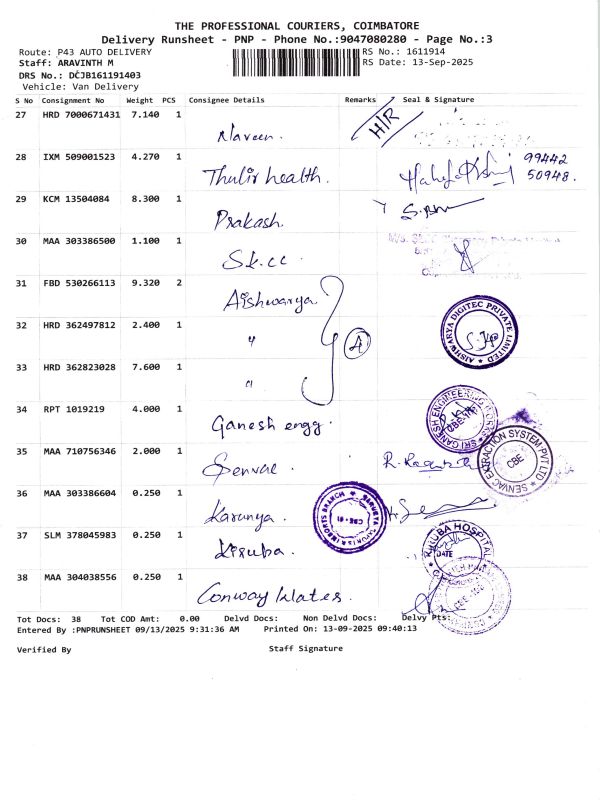 THE PROFESSIONAL COURIERS, COIMBATORE
Delivery Runsheet - PNP - Phone No.:9047080280 - Page No.:3
Route: P43 AUTO DELIVERY RS No.: 1611914
Staff: ARAVINTH M RS Date: 13-Sep-2025
DRS No.: DCJB161191403
Vehicle: Van Delivery
S No Consignment No Weight PCS Consignee Details Remarks Seal & Signature
27 HRD 7000671431 7.140 1 Naveen. H/R
28 IXM 509001523 4.270 1 Thulir health. 99442
50948.
29 KCM 13504084 8.300 1 Prakash.
30 MAA 303386500 1.100 1 Sk.cc
31 FBD 530266113 9.320 2 Aishwarya
32 HRD 362497812 2.400 1 " A AISHWARYA DIGITEC PRIVATE LIMITED
33 HRD 362823028 7.600 1 "
34 RPT 1019219 4.000 1 Ganesh engg. SRI GANESH ENGINEERING WORKS
35 MAA 710756346 2.000 1 Senvac SENVAC EXTRACTION SYSTEM PVT LTD CBE
36 MAA 303386604 0.250 1 Karunya.
37 SLM 378045983 0.250 1 Kiruba. KIRUBA HOSPITAL DATE
38 MAA 304038556 0.250 1 Conway Wates.
Tot Docs: 38 Tot COD Amt: 0.00 Delvd Docs: Non Delvd Docs: Delvy Pts:
Entered By :PNPRUNSHEET 09/13/2025 9:31:36 AM Printed On: 13-09-2025 09:40:13
Verified By Staff Signature